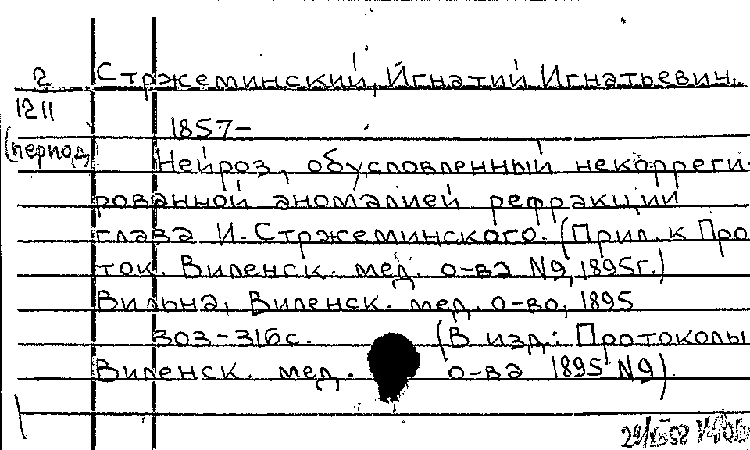 2 Стржеминский, Игнатий Игнатьевич.
1211
1857-
(период)
Нейроз, обусловленный некоррeги-
рованной аномалией рефракции
глаза И. Стржеминского. (Прил. к Про
ток. Виленск. мед. о-ва N9, 1895г.)
Вильна, Виленск. мед. о-во, 1895
303-316с. (В изд.: Протоколы
Виленск. мед. о-ва 1895 N9).